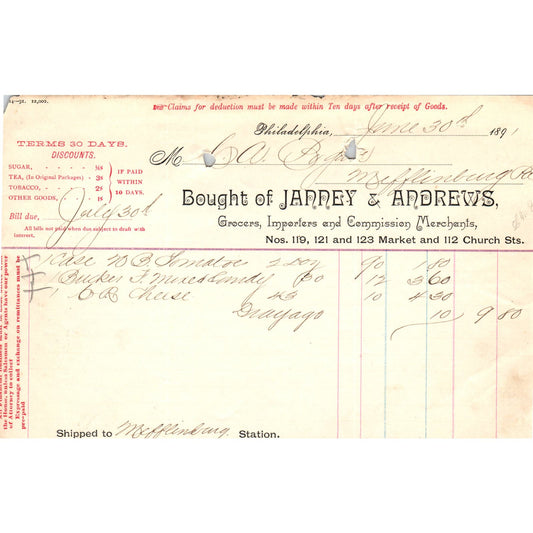 14-91. 12,000.
Claims for deduction must be made within Ten days after receipt of Goods.
Philadelphia, June 30th 1891
TERMS 30 DAYS.
DISCOUNTS.
SUGAR, - - - - -
TEA, (In Original Packages) - 3%
TOBACCO, - - - - 2%
OTHER GOODS, - - - 1%
IF PAID
WITHIN
10 DAYS.
Bill due, July 30th
All bills not paid when due subject to draft with
interest.
M
Mifflinburg Pa
Bought of JANNEY & ANDREWS,
Grocers, Importers and Commission Merchants,
Nos. 119, 121 and 123 Market and 112 Church Sts.
1 Case N B Tomatoe 2 doz 90 1.80
1 Bucket F Mixed Candy 30 12 3 60
1 Cheese 43 10 4 30
Drayage 10 9 80
the Houseanless Salesmen or Agents have our power
of Attorney to collect
Expressage and exchange on remittances must be
pre-paid
Shipped to Mifflinburg Station.